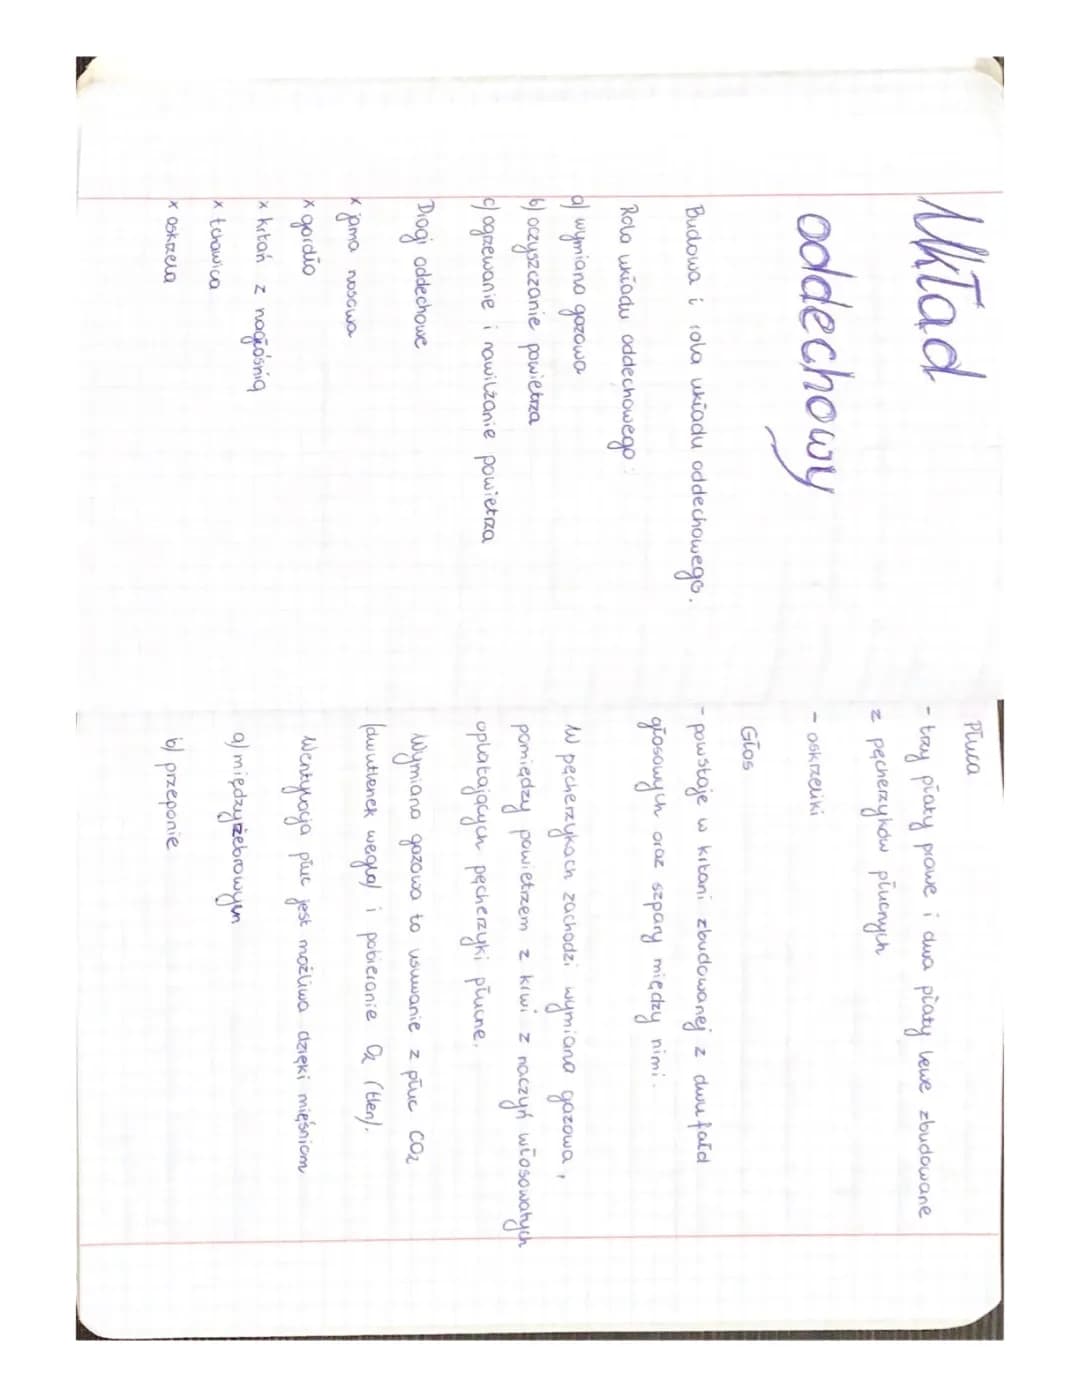 Układ
oddechowy
Budowa i rola układu oddechowego.
Rola układu oddechowego:
a) wymiana gazowa
b) oczyszczanie powietrza
c) ogrzewanie i nawilżanie powietrza
Drogi oddechowe
x jama nosowa
x gardło
x krtań z nagłośnią
x tchawica
x oskrzela
Płuca
- trzy płaty prawe i dwa płaty lewe zbudowane
z pęcherzyków płucnych
- oskrzeliki
Głos
- powstaje w krtani zbudowanej z dwu fałd
głosowych oraz szpary między nimi.
W pęcherzykach zachodzi wymiana gazowa,
pomiędzy powietrzem z krwi z naczyń włosowatych
oplatających pęcherzyki płucne.
Wymiana gazowa to usuwanie z płuc CO₂
(dwutlenek węgla) i pobieranie O₂ (tlen).
Wentylacja płuc jest możliwa dzięki mięśniom
a) międzyżebrowym
b) przeponie